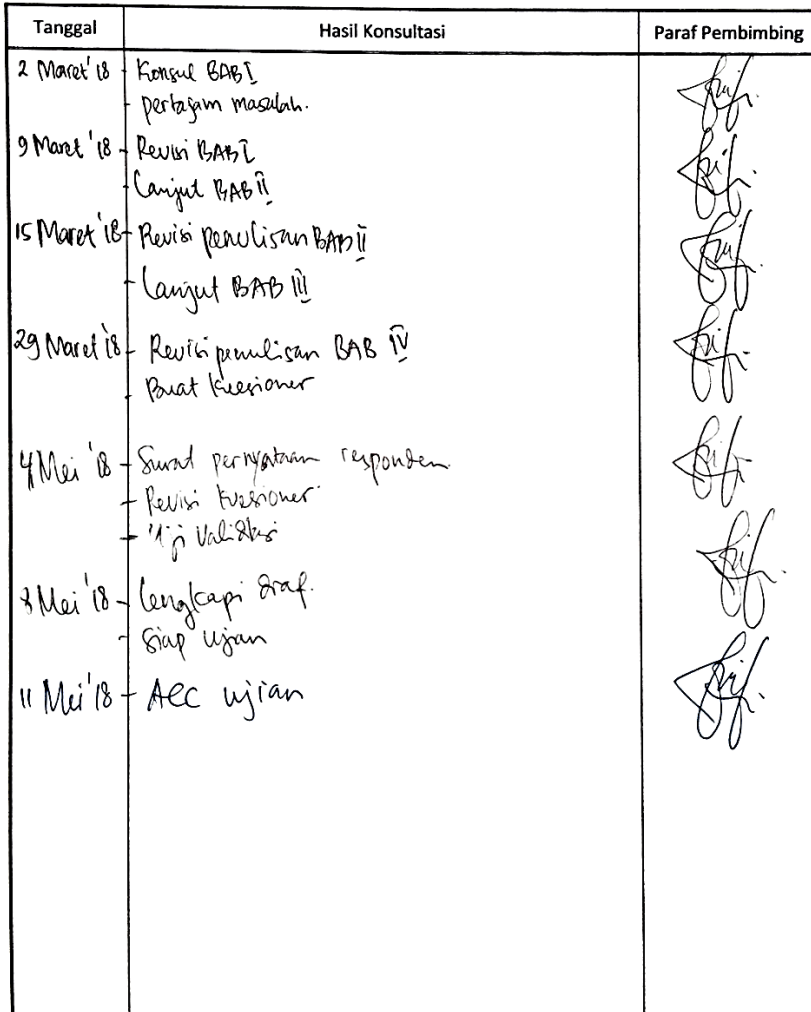 Tanggal Hasil Konsultasi Paraf Pembimbing
2 Maret '18 - Konsul BAB I
- pertajam masalah.
9 Maret '18 - Revisi BAB I
- Lanjut BAB II
15 Maret '18 - Revisi penulisan BAB II
- Lanjut BAB III
29 Maret '18 - Revisi penulisan BAB IV
- Buat kuesioner
4 Mei '18 - Surat pernyataan responden
- Revisi kuesioner
- Uji Validitas
8 Mei '18 - Lengkapi draf.
- Siap ujian
11 Mei '18 - ACC ujian